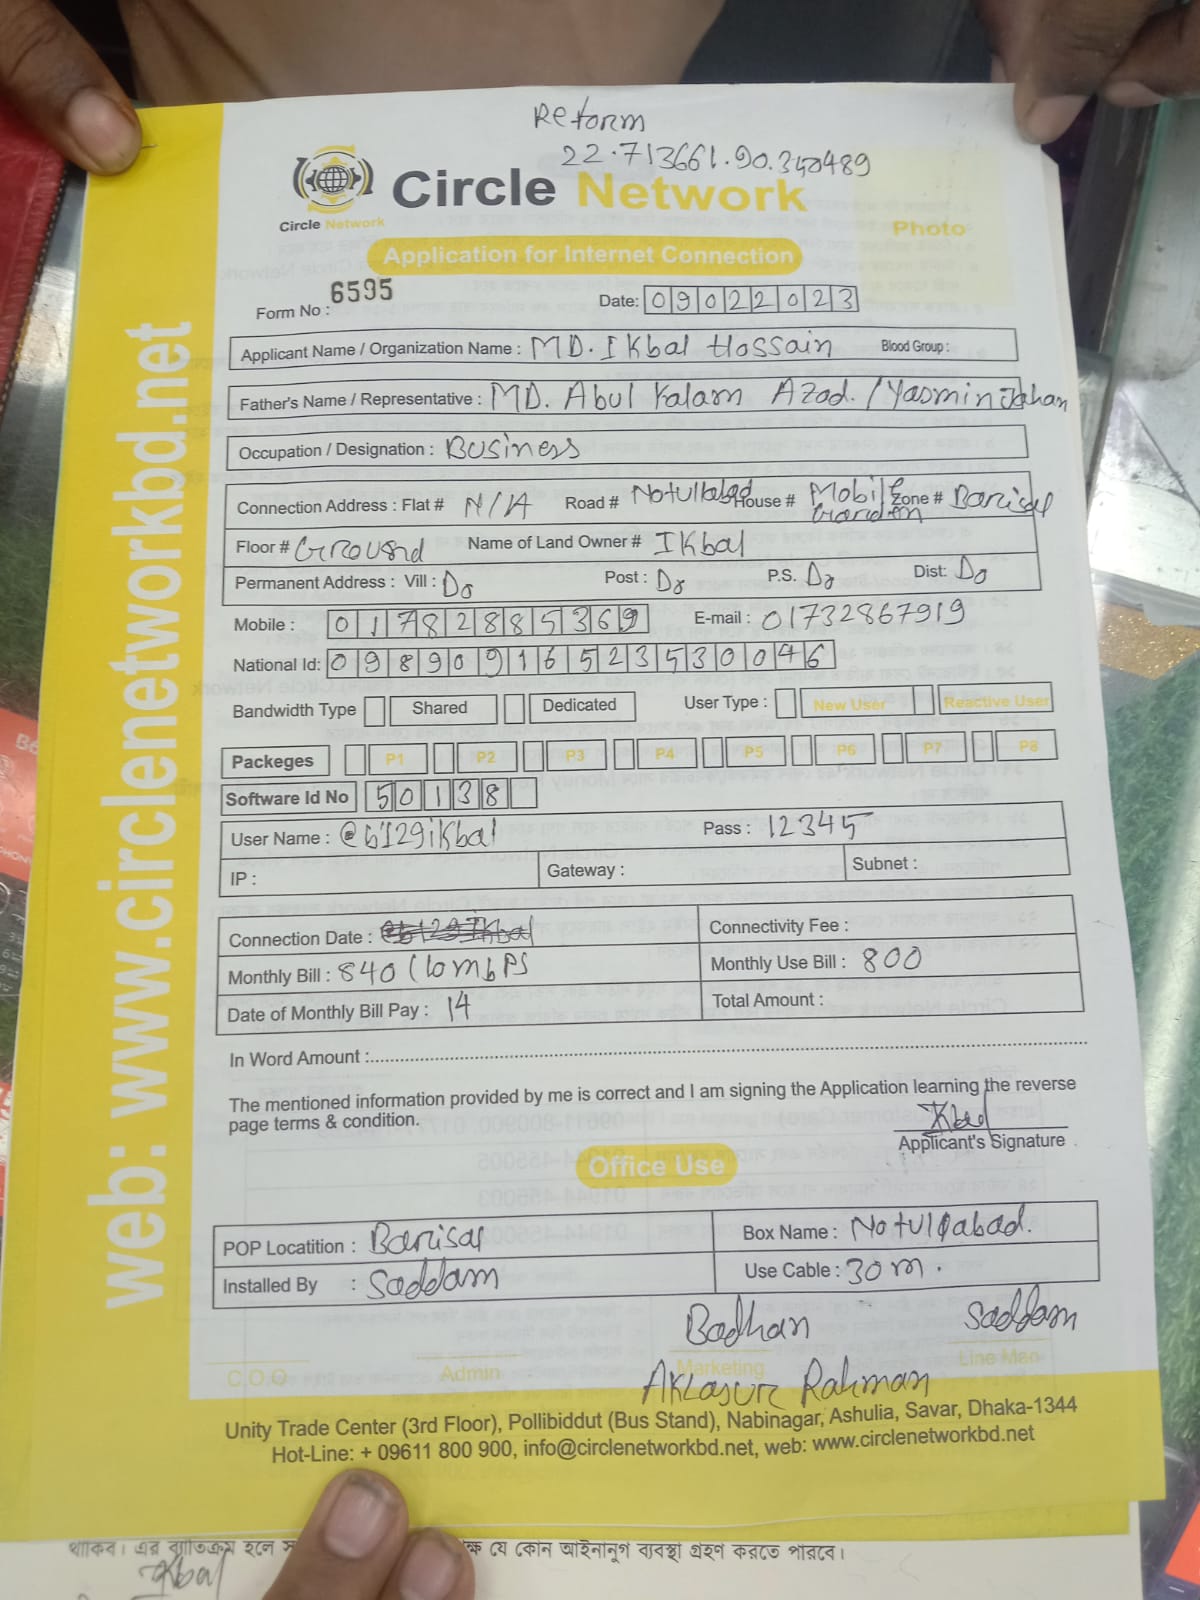 Reform
22.713661.90.340489
Circle Network
Circle Network
Photo
Application for Internet Connection
Form No : 6595
Date: 09022023
Applicant Name / Organization Name : MD. Ikbal Hossain Blood Group :
Father's Name / Representative : MD. Abul Kalam Azad. / Yasmin Jahan
Occupation / Designation : Business
Connection Address : Flat # N/A Road # Notullabad House # Mobile Garden Zone # Barisal
Floor # Ground Name of Land Owner # Ikbal
Permanent Address : Vill : Do Post : Do P.S. Do Dist: Do
Mobile : 01782885369 E-mail : 01732867919
National Id: 09890916523530046
Bandwidth Type Shared Dedicated User Type : New User Reactive User
Packeges P1 P2 P3 P4 P5 P6 P7 P8
Software Id No 50138
User Name : @b129iKbal Pass : 12345
IP : Gateway : Subnet :
Connection Date : Connectivity Fee :
Monthly Bill : 840 (10mbPS Monthly Use Bill : 800
Date of Monthly Bill Pay : 14 Total Amount :
In Word Amount :
The mentioned information provided by me is correct and I am signing the Application learning the reverse
page terms & condition.
Ikbal
Applicant's Signature
Office Use
POP Locatition : Barisal Box Name : Notullabad.
Installed By : Saddam Use Cable : 30m.
Badhan Saddam
C.O.O Admin Marketing Line Man
Aklasur Rahman
Unity Trade Center (3rd Floor), Pollibiddut (Bus Stand), Nabinagar, Ashulia, Savar, Dhaka-1344
Hot-Line: + 09611 800 900, info@circlenetworkbd.net, web: www.circlenetworkbd.net
web: www.circlenetworkbd.net
থাকিব। এর ব্যাতিক্রম হলে যে কোন আইনানুগ ব্যবস্থা গ্রহণ করতে পারবে।
Ikbal